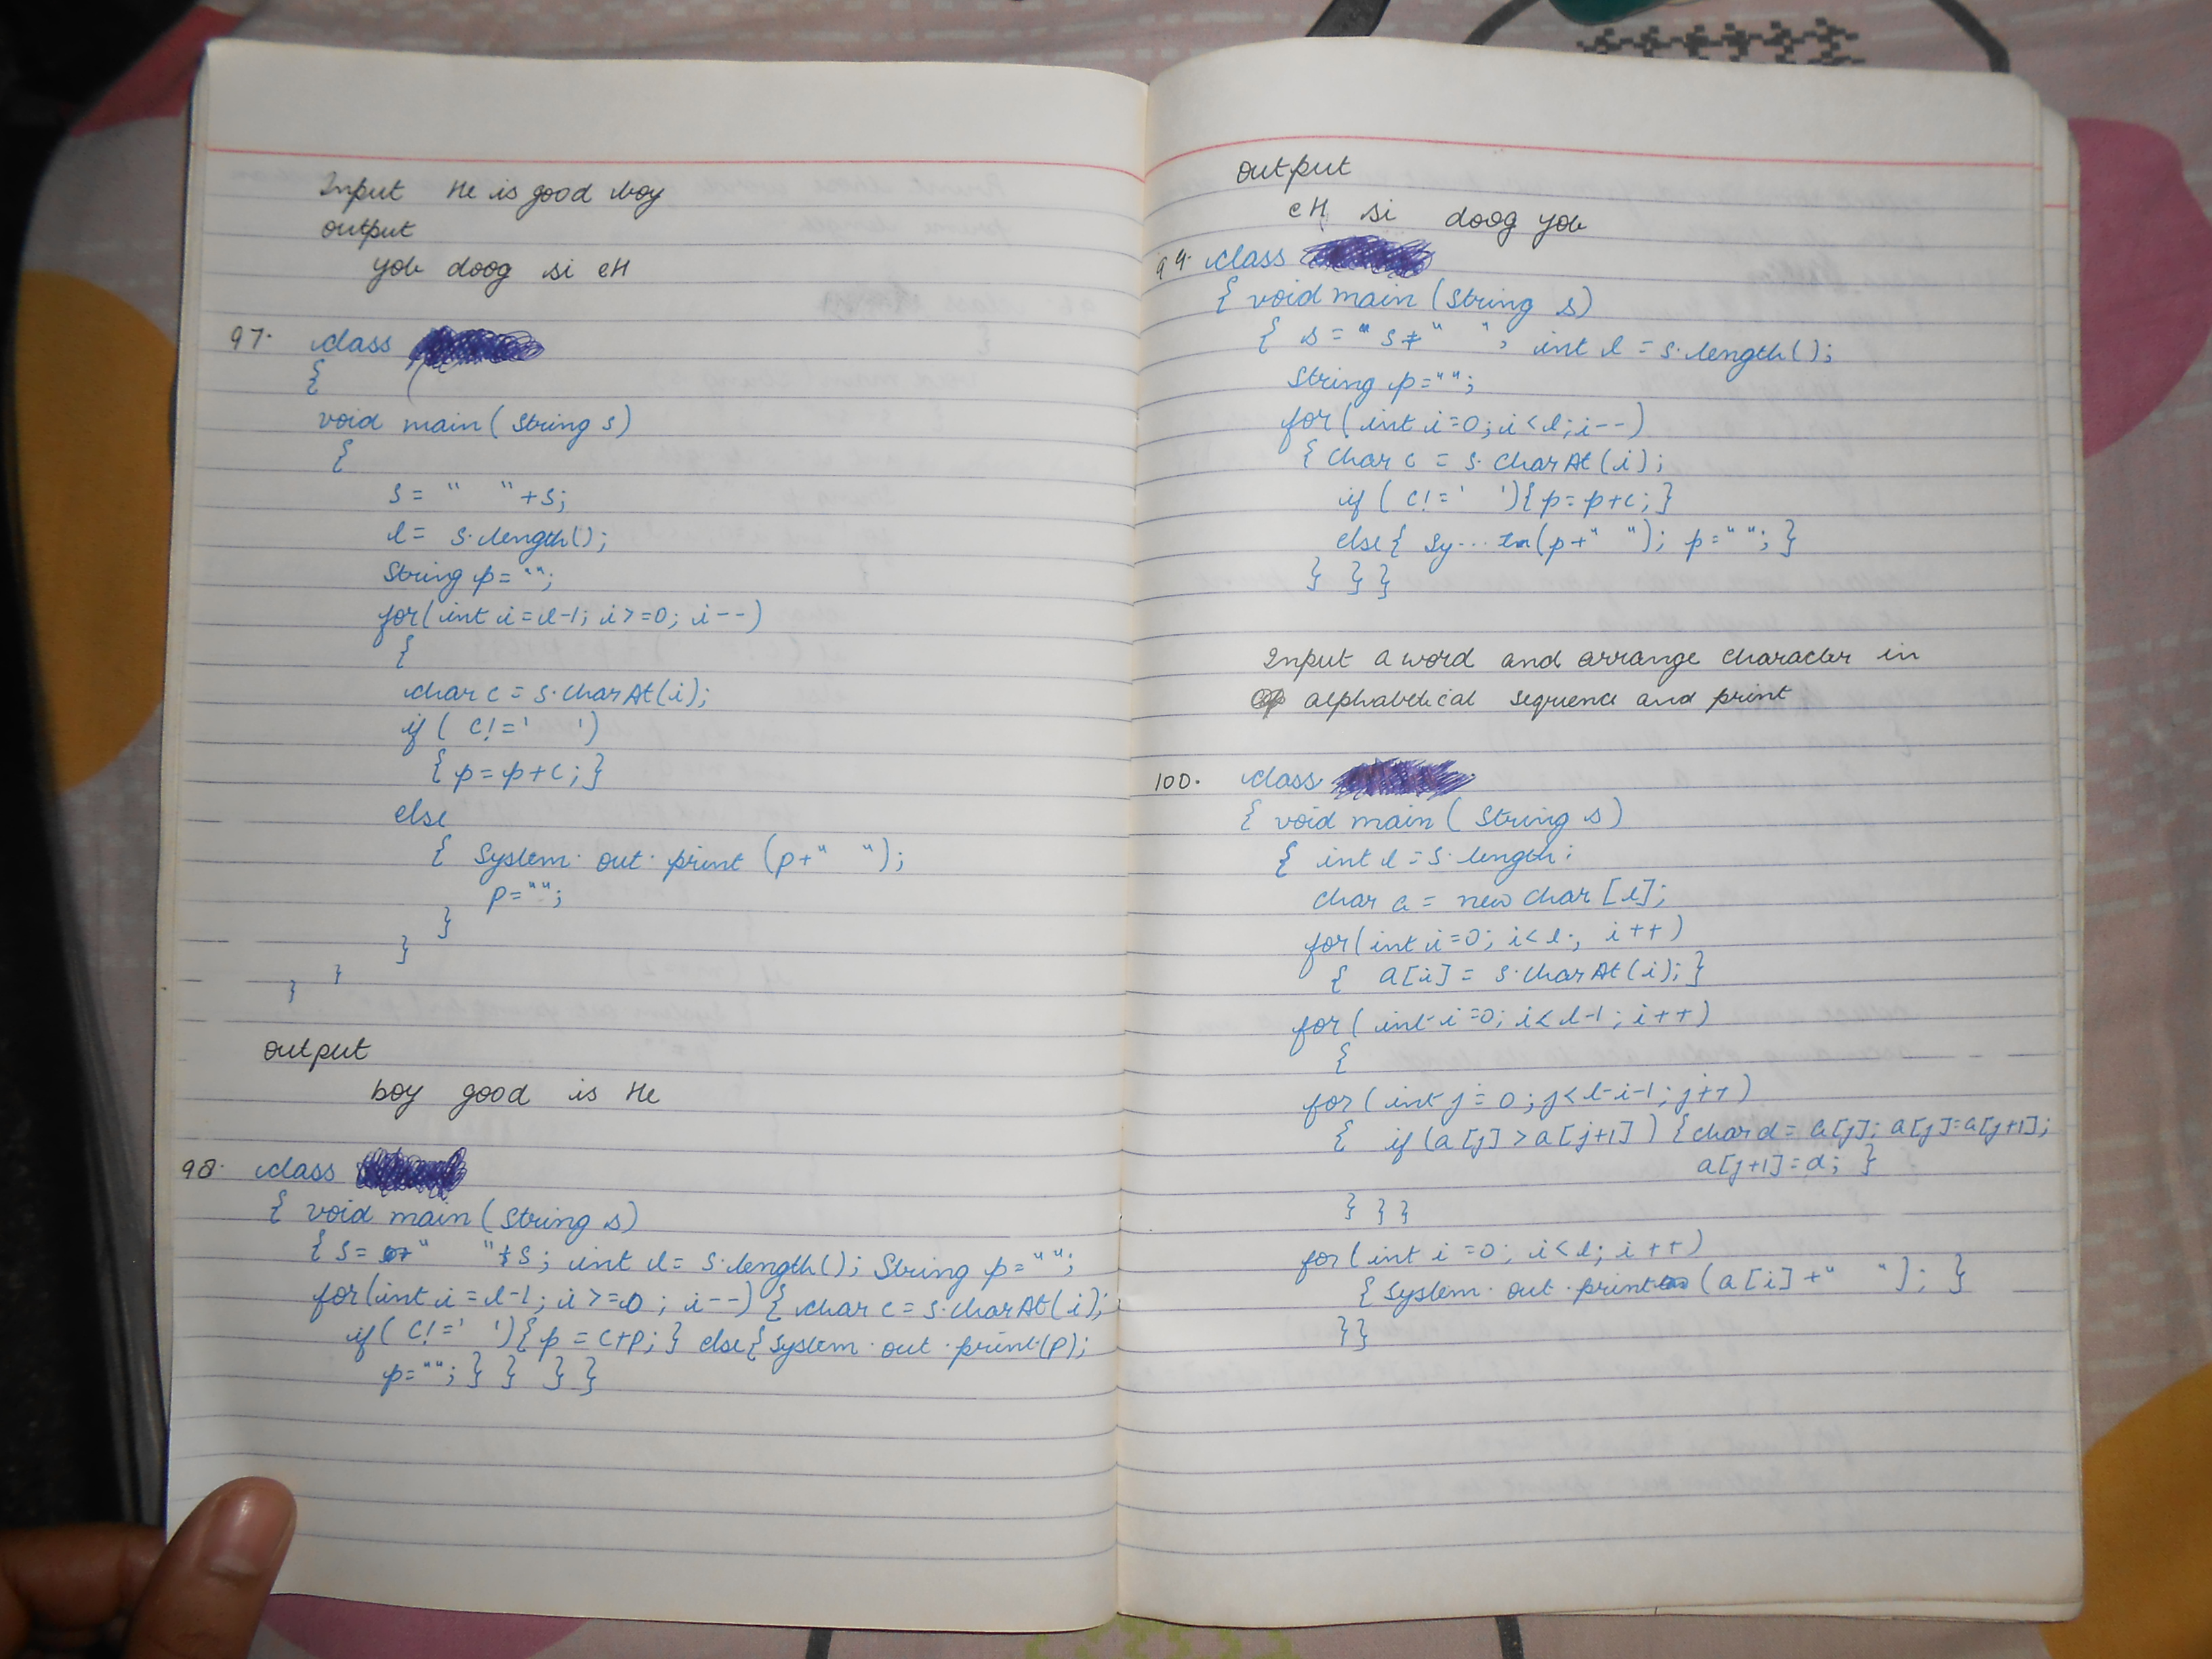 Input He is good boy
output
yob doog si eH
97. class
{
void main ( String s)
{
s = "  " + s;
l = s.length();
String p = "";
for(int i=l-1; i>=0; i--)
{
char c = s.charAt(i);
if ( c!=' ')
{ p = p+c; }
else
{ System.out.print (p+"  ");
p="";
}
}
}
}
output
boy good is He
98. class
{ void main ( String s)
{ s = "  "+s; int l= s.length(); String p= "";
for(int i=l-1; i>=0; i--) { char c = s.charAt(i);
if ( c!=' '){ p = c+p; } else{ System.out.print(p);
p=""; } } } }
output
eH si doog yob
99. class
{ void main (String s)
{ s = " s+"  "; int l = s.length();
String p="";
for( int i=0; i<l; i--)
{ char c = s.charAt(i);
if ( c!=' '){ p= p+c; }
else{ Sy...tn(p+"  "); p=""; }
} } }
Input a word and arrange character in
alphabetical sequence and print
100. class
{ void main ( String s)
{ int l = s.length;
char a = new char [l];
for(int i=0; i<l; i++)
{ a[i] = s.charAt(i); }
for ( int i=0; i<l-1; i++)
{
for ( int j=0; j<l-i-1; j++)
{ if (a[j] > a[j+1] ) { char d= a[j]; a[j]=a[j+1];
a[j+1]=d; }
} } }
for(int i=0; i<l; i++)
{ System.out.print (a[i]+"  "]; }
} }